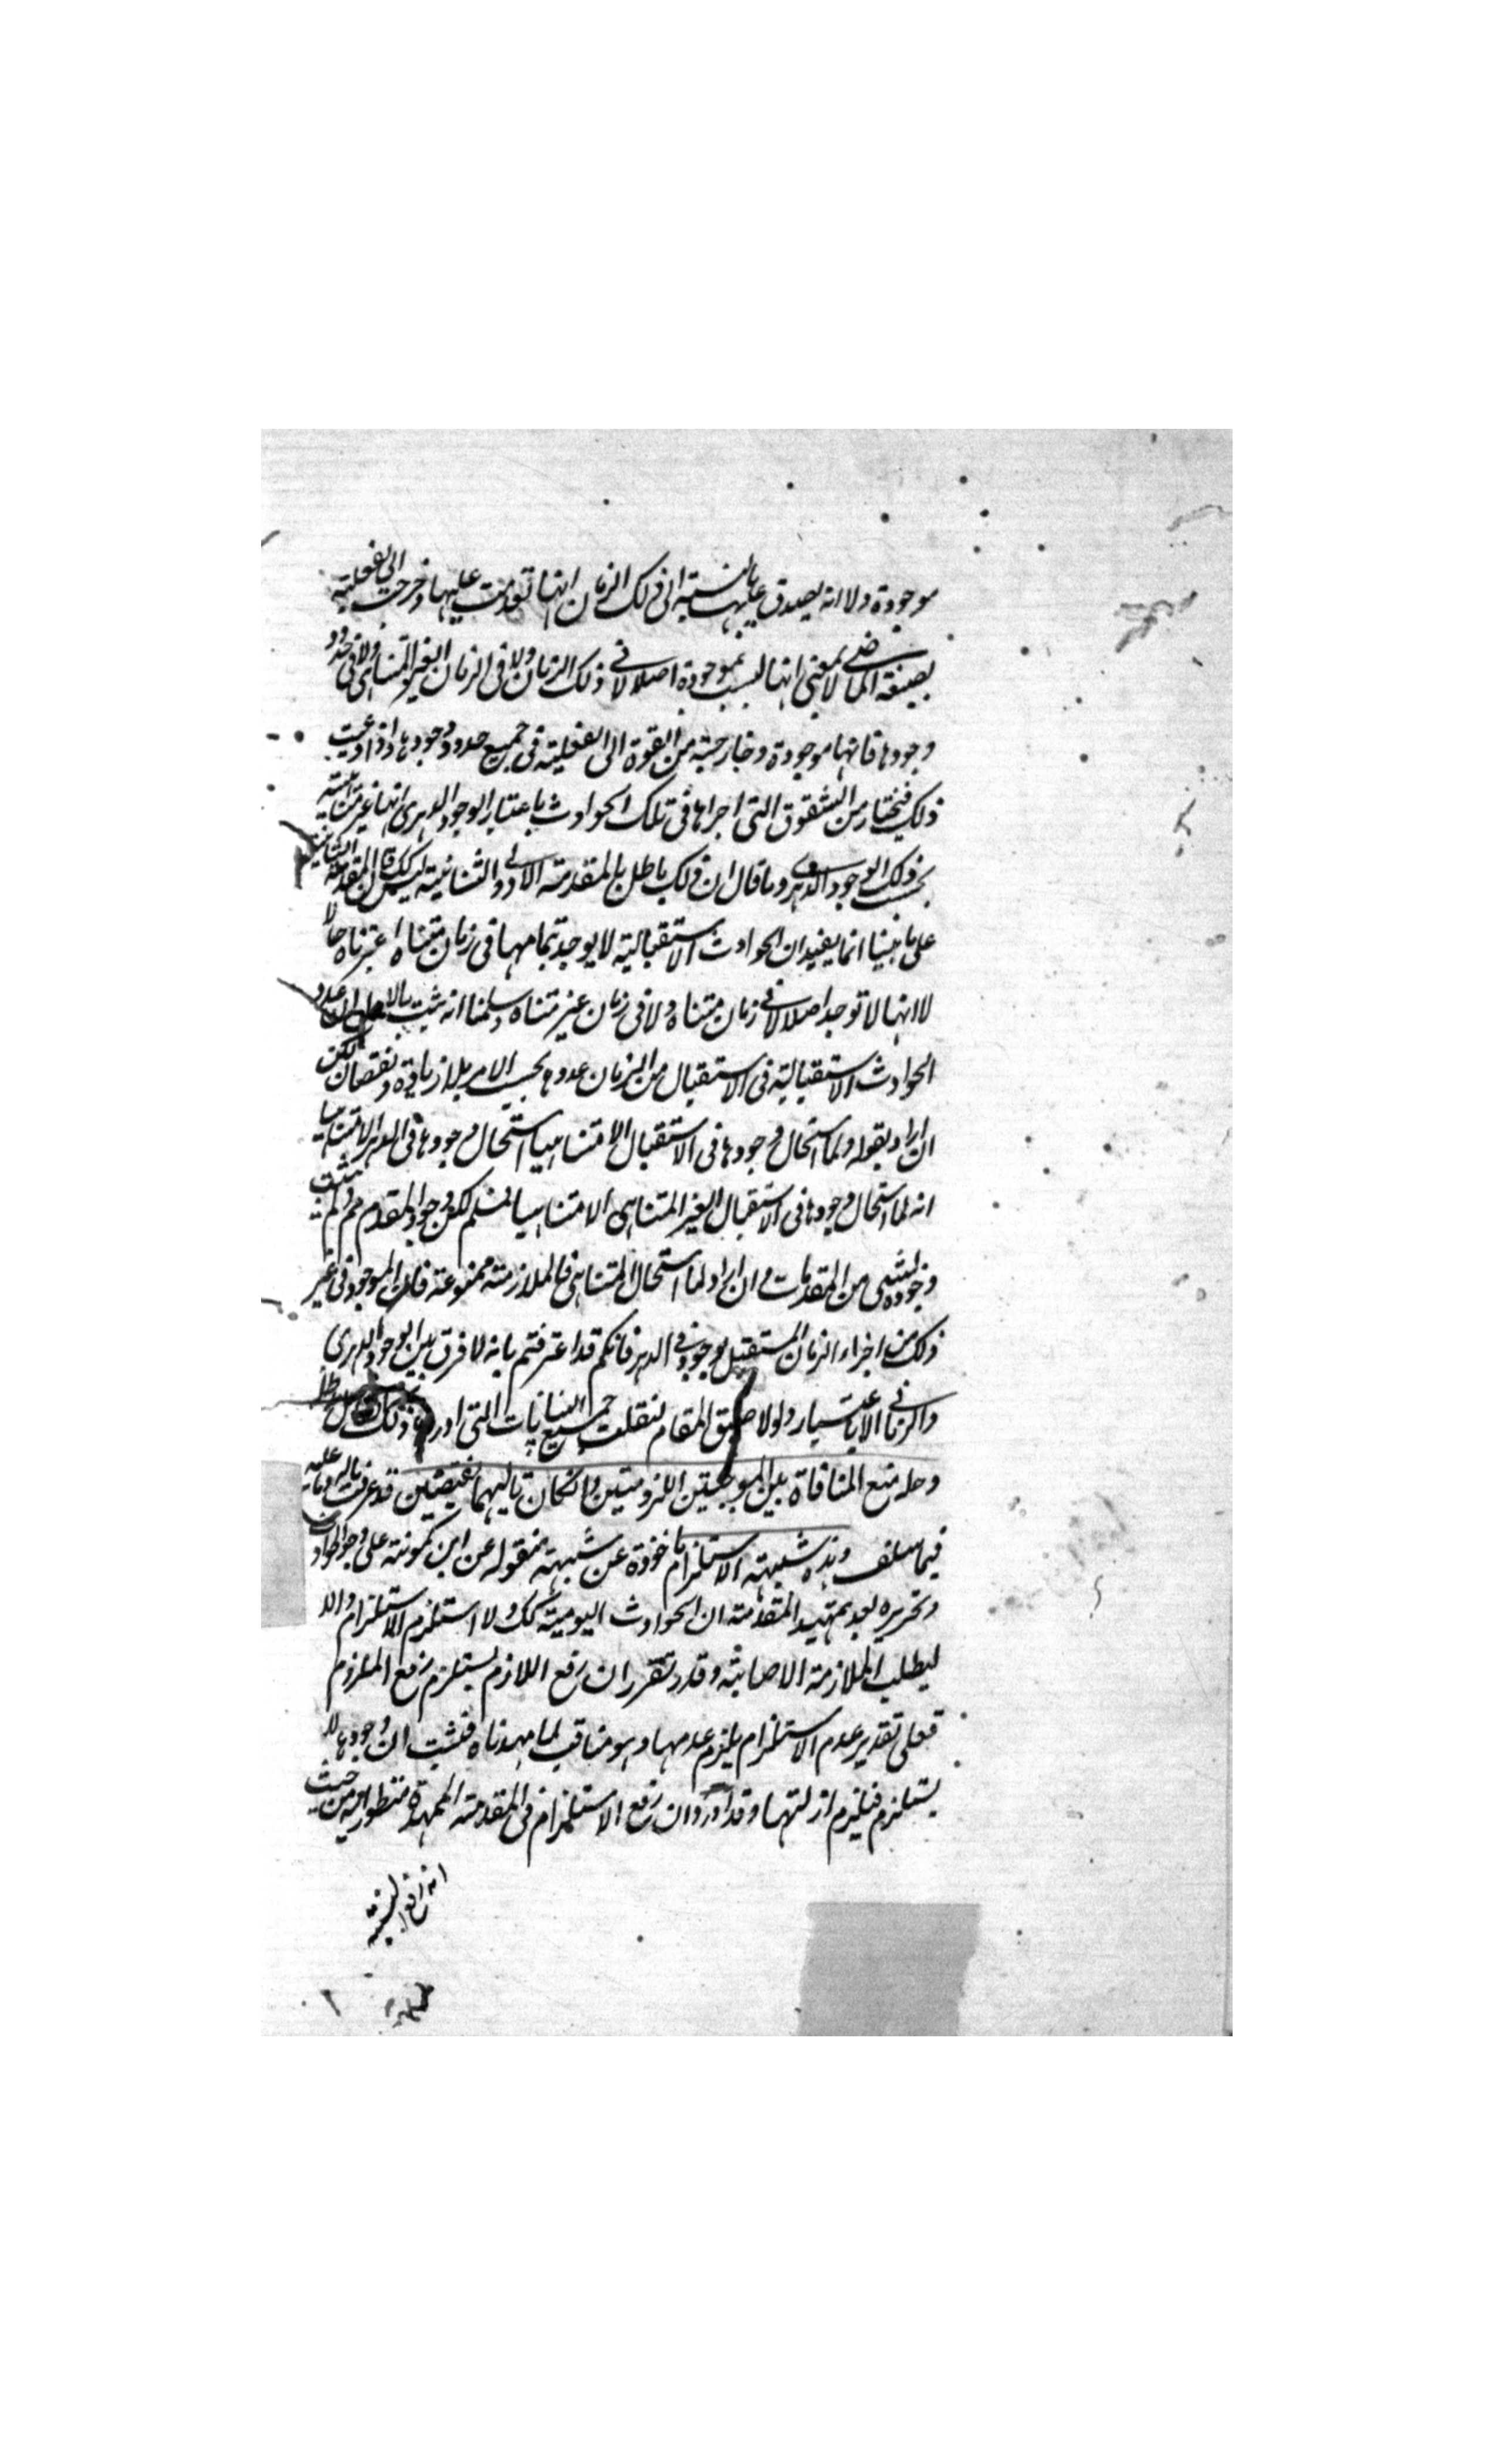 موجودة ولا انه يصدق عليها بالنسبة الى ذلك الزمان انها تقدمت عليها وخرجت الى الفعلية
بصيغة الماضي لا بمعنى انها ليست بموجودة اصلا لا في ذلك الزمان ولا في الزمان الغير المتناهي ولا في حدود
وجودها فانها موجودة وخارجة من القوة الى الفعلية في جميع حدود وجودها واذا دعيت
ذلك فنختار من الشقوق التي اجراها في تلك الحوادث باعتبار الوجود الدهري انها غير متناهية
بحسب ذلك الوجود الدهري وما قال ان ذلك باطل بالمقدمة الاولى والثانية ليس كك فان المقدمة الثانية
على ما بينا انما يفيد ان الحوادث الاستقبالية لا يوجد بتمامها في زمان متناه اعتبرناه حالا
لا انها لا توجد اصلا لا في زمان متناه ولا في زمان غير متناه وسلمنا انه ثبت بالاصل ان عدد
الحوادث الاستقبالية في الاستقبال من الزمان عددها بحسب الامر بلا زيادة ونقصان لكن
ان اراد بقوله ولما استحال وجودها في الاستقبال لا متناهيا استحال وجودها في الدهر لا متناهيا
انه لما استحال وجودها في الاستقبال الغير المتناهي لا متناهيا فمسلم لكن وجود المقدم مم ولم يثبت
وجوده بشي من المقدمات وان اراد لما استحال المتناهي فالملازمة ممنوعة فان الموجود في غير
ذلك من اجزاء الزمان المستقبل موجود في الدهر فانكم قد اعترفتم بانه لا فرق بين الوجود الدهري
والزماني الا بالاعتبار ولولا ضيق المقام لنقلت جميع البيانات التي اوردها ذلك
وحله منع المنافاة بين الموجبتين اللزوميتين وان كان تاليهما نقيضين قد عرفت ماله وما عليه
فيما سلف وهذه شبهة الاستلزام ماخوذة عن شبهة منقولة عن ابن كمونة على وجود الحوادث
وتحريره بعد تمهيد المقدمة ان الحوادث اليومية كك ولا استلزم الاستلزام والا
ليطلب الملازمة الاصابة وقد تقرر ان رفع اللازم يستلزم رفع الملزوم
فعلى تقدير عدم الاستلزام يلزم عدمها وهو مناف لما مهدناه فثبت ان وجودها لا
يستلزم فيلزم ازليتها وقد اورد وان رفع الاستلزام في المقدمة الممهدة منظور اليه من حيث
انه رافع لنسبة